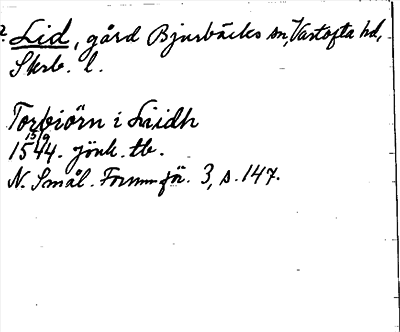 ?. Lid, gård Bjurbäcks sn, Vartofta hd,
Skrb. l.
Torbiörn i Liidh
15/9
1544. Jönk. tb.
N. Smål. Fornm.för. 3, s. 147.